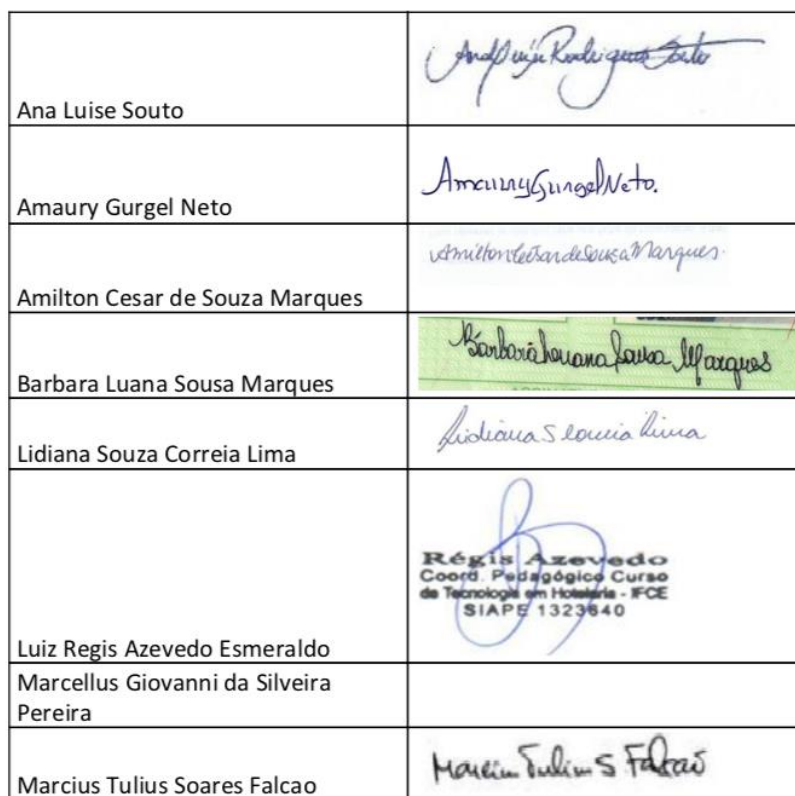 Ana Luise Souto
Ana Luise Rodrigues Souto
Amaury Gurgel Neto
Amaury Gurgel Neto.
Amilton Cesar de Souza Marques
Amilton Cesar de Sousa Marques.
Barbara Luana Sousa Marques
Bárbara Luana Sousa Marques
Lidiana Souza Correia Lima
Lidiana S Correia Lima
Luiz Regis Azevedo Esmeraldo
Régis Azevedo
Coord. Pedagógico Curso
de Tecnologia em Hotelaria - IFCE
SIAPE 1323640
Marcellus Giovanni da Silveira
Pereira
Marcius Tulius Soares Falcao
Marcius Tulius S Falcão